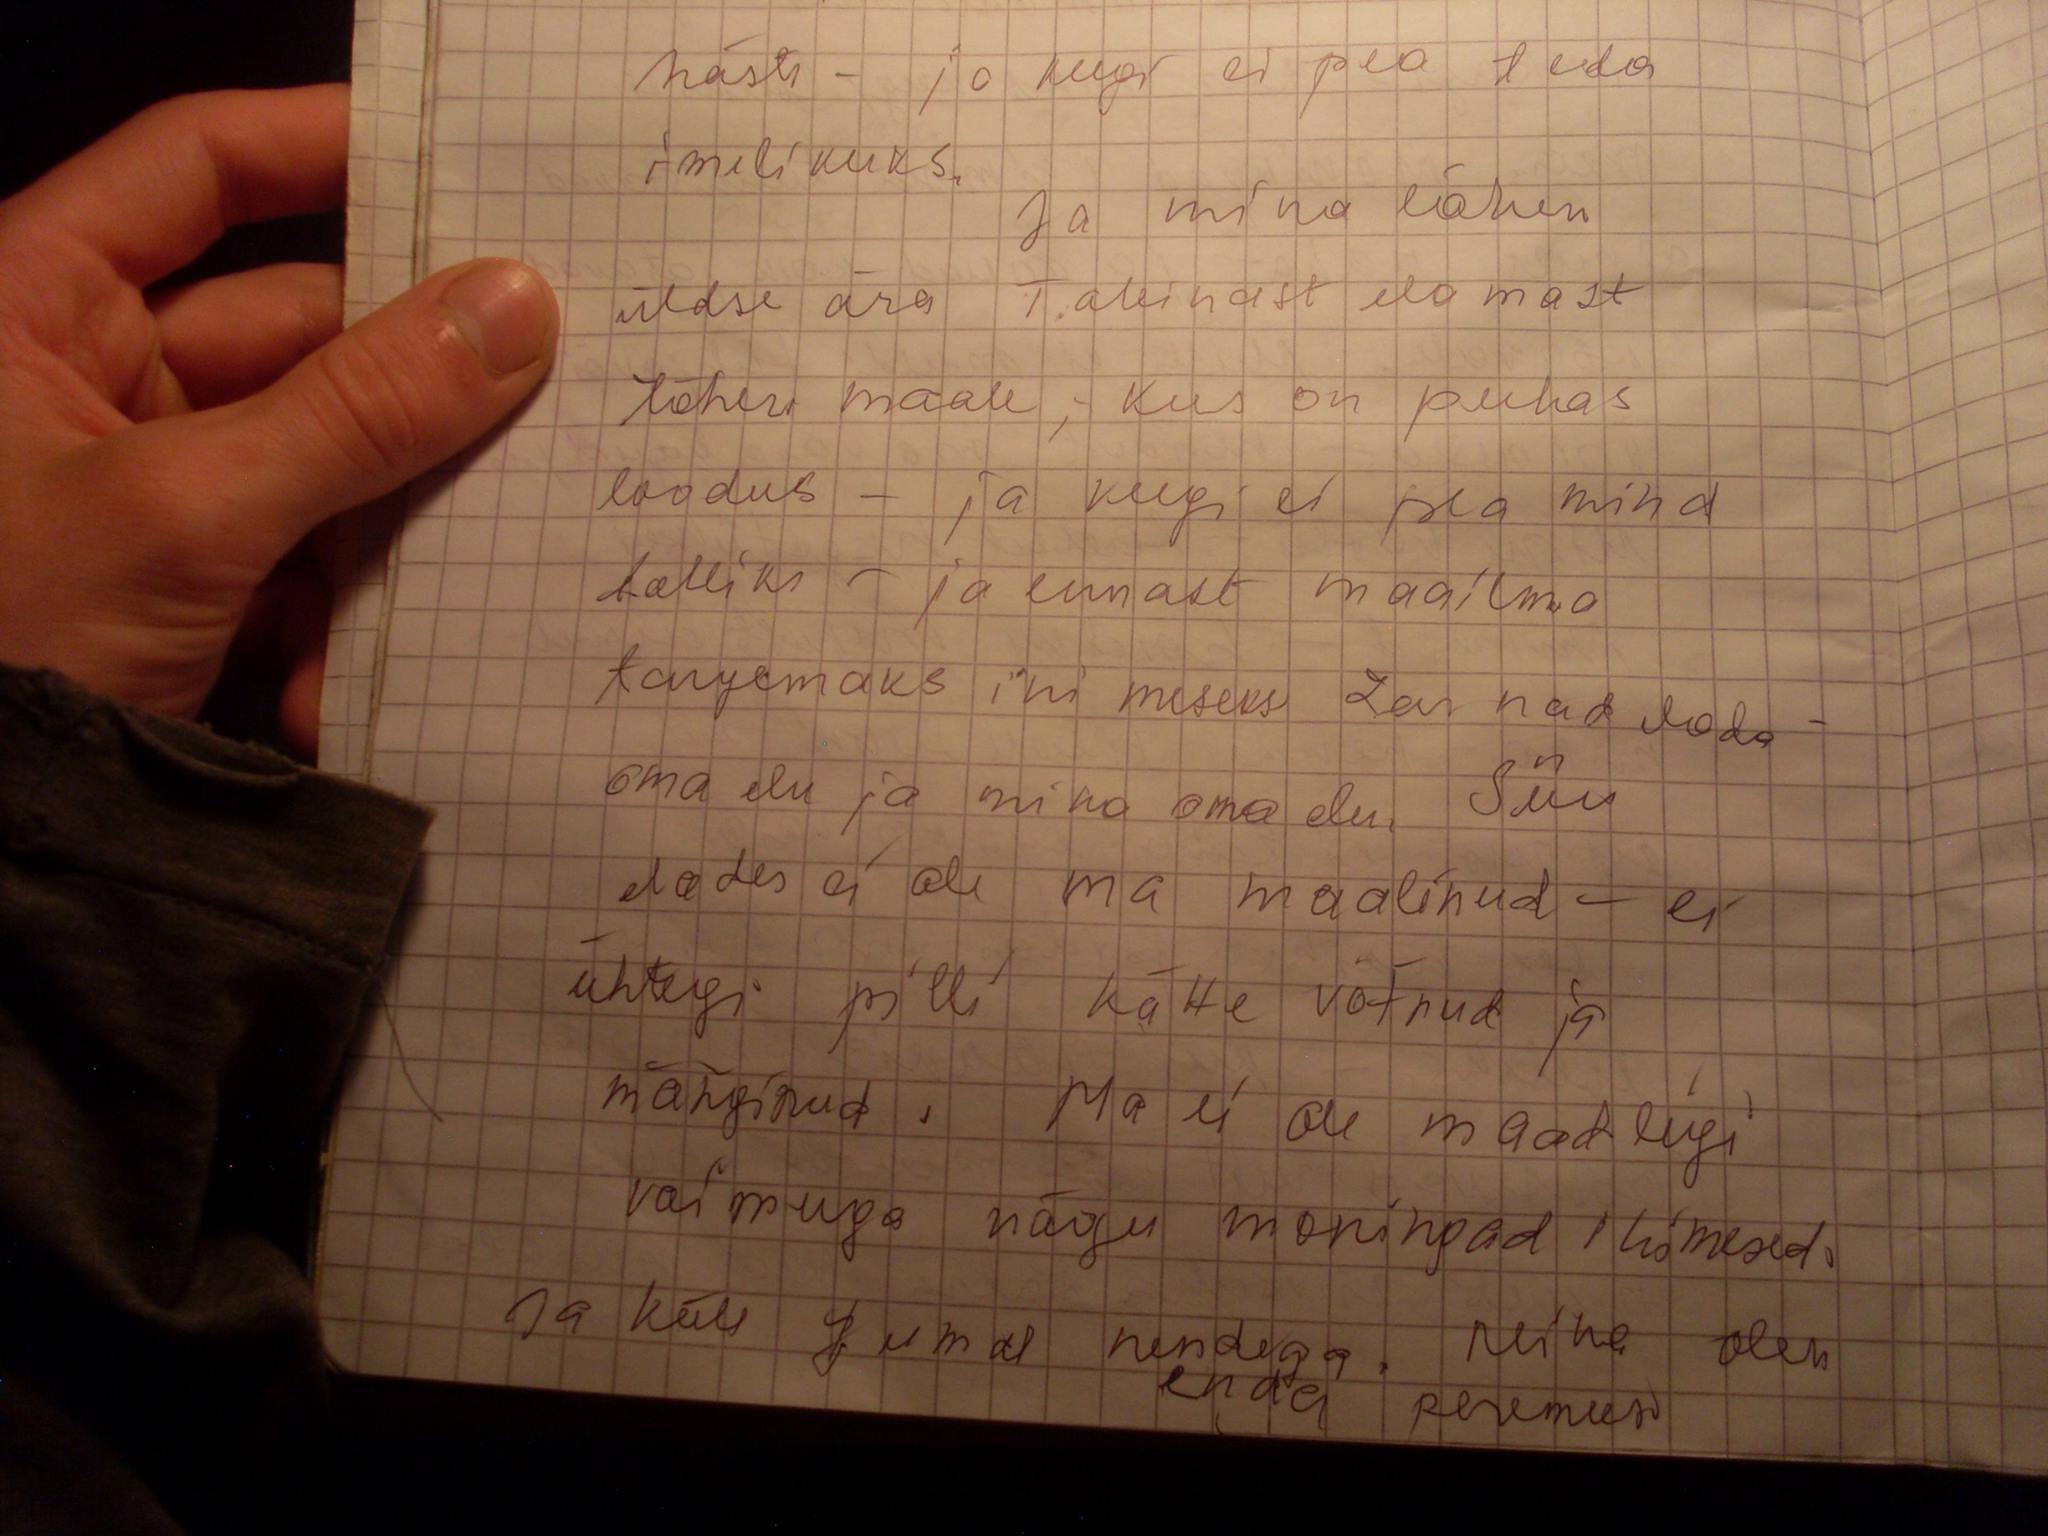 hästi - ja keegi ei pea teda
imelikuks.
Ja mina lähen
üldse ära Tallinast elamast
lähen maale, - kus on puhas
loodus - ja keegi ei pea mind
lolliks - ja ennast maailma
targemaks inimeseks Las nad elada -
oma elu ja mina oma elu. Siin
elades ei ole ma maalinud - ei
ühtegi pilli kätte võtnud ja
mänginud. Ma ei ole maadligi
vaimuga nagu moningad inimesed.
Ja küll Jumal nendega. Mina olen
enda peremees